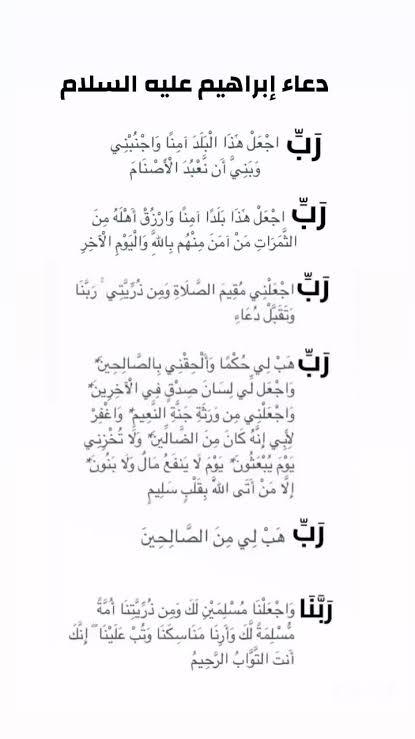 دعاء إبراهيم عليه السلام
رَبِّ اجْعَلْ هَذَا الْبَلَدَ آمِنًا وَاجْنُبْنِي
وَبَنِيَّ أَن نَّعْبُدَ الْأَصْنَامَ
رَبِّ اجْعَلْ هَذَا بَلَدًا آمِنًا وَارْزُقْ أَهْلَهُ مِنَ
الثَّمَرَاتِ مَنْ آمَنَ مِنْهُم بِاللَّهِ وَالْيَوْمِ الْآخِرِ
رَبِّ اجْعَلْنِي مُقِيمَ الصَّلَاةِ وَمِن ذُرِّيَّتِي ۚ رَبَّنَا
وَتَقَبَّلْ دُعَاءِ
رَبِّ هَبْ لِي حُكْمًا وَأَلْحِقْنِي بِالصَّالِحِينَ*
وَاجْعَل لِّي لِسَانَ صِدْقٍ فِي الْآخِرِينَ*
وَاجْعَلْنِي مِن وَرَثَةِ جَنَّةِ النَّعِيمِ* وَاغْفِرْ
لِأَبِي إِنَّهُ كَانَ مِنَ الضَّالِّينَ* وَلَا تُخْزِنِي
يَوْمَ يُبْعَثُونَ* يَوْمَ لَا يَنفَعُ مَالٌ وَلَا بَنُونَ*
إِلَّا مَنْ أَتَى اللَّهَ بِقَلْبٍ سَلِيمٍ
رَبِّ هَبْ لِي مِنَ الصَّالِحِينَ
رَبَّنَا وَاجْعَلْنَا مُسْلِمَيْنِ لَكَ وَمِن ذُرِّيَّتِنَا أُمَّةً
مُّسْلِمَةً لَّكَ وَأَرِنَا مَنَاسِكَنَا وَتُبْ عَلَيْنَا ۖ إِنَّكَ
أَنتَ التَّوَّابُ الرَّحِيمُ